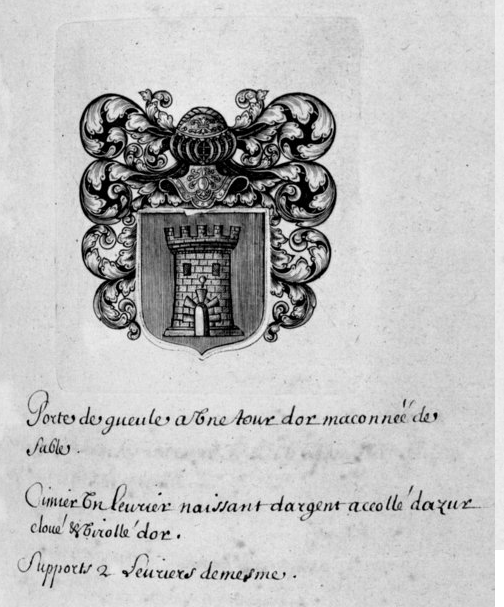 Porte de gueule a Vne tour dor maconneé de
sable.
Cimier Vn leurier naissant dargent accollé dazur
cloué & Virollé dor.
Supports 2 Leuriers demesme.